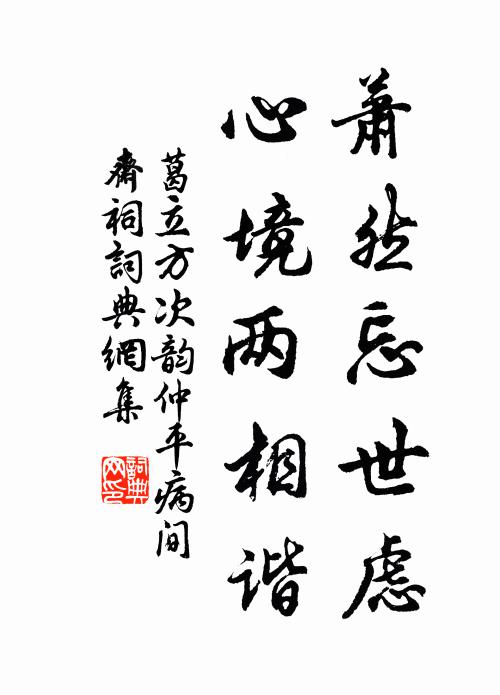 萧然忘世虑
心境两相谐
葛立方次韵仲平病间
齋祠詞典網集
詞典
网印